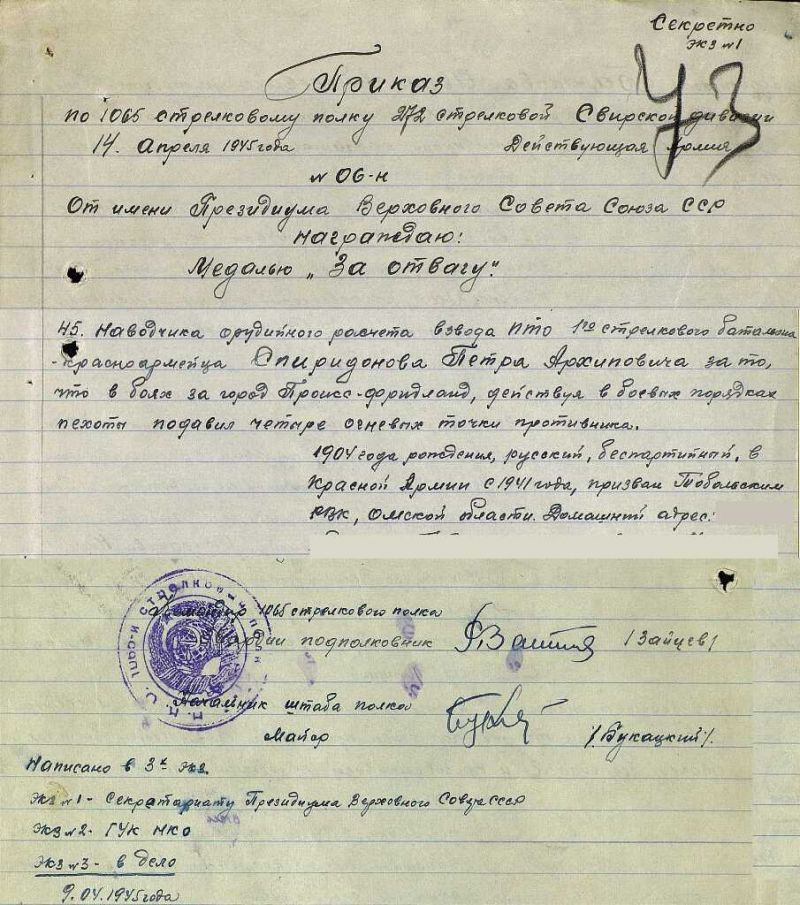 Секретно
экз №1
УЗ
Приказ
по 1065 стрелковому полку 272 стрелковой Свирской дивизии
14. Апреля 1945 года Действующая Армия
№ 06-н
От имени Президиума Верховного Совета Союза ССР
награждаю:
Медалью „За отвагу".
45. Наводчика орудийного расчета взвода ПТО 1го стрелкового батальона
-красноармейца Спиридонова Петра Архиповича за то,
что в боях за город Происс-Фридланд, действуя в боевых порядках
пехоты подавил четыре огневых точки противника.
1904 года рождения, русский, беспартийный, в
Красной Армии с 1941 года, призван Тобольским
РВК, Омской области. Домашний адрес:
Командир 1065 стрелкового полка
Гвардии подполковник /Зайцев/
Начальник штаба полка
Майор /.Букацкий/.
Написано в 3х экз.
Экз №1- Секретариату Президиума Верховного Совза ССР
Экз №2- ГУК НКО
Экз №3- в дело
9.04.1945 года